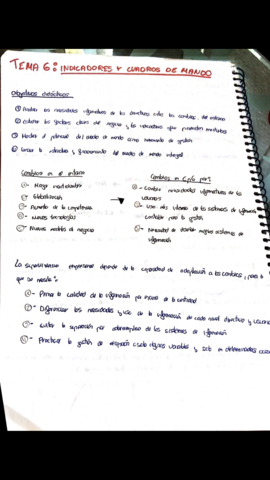 TEMA 6: INDICADORES Y CUADROS DE MANDO
Objetivos didácticos:
① Analizar las necesidades informativas de los directivos ante los cambios del entorno
② Conocer los factores claves del negocio y los indicadores que permiten
③ Mostrar el potencial del cuadro de mando como herramienta de gestión
④ Conocer la estructura y funcionamiento del cuadro de mando integral
Cambios en el entorno
①- Mayor incertidumbre
②- Globalización
③- Aumento de la competencia
④- Nuevas tecnologías
⑤- Nuevos modelos de negocio
Cambios en
①- Cambian necesidades informativas de los
usuarios
②- Uso más intenso de los sistemas de información
contable para la gestión
③- Necesidad de diseñar mejores sistemas de
información
La supervivencia empresarial depende de la capacidad de adaptación a los cambios, para lo
que se necesita:
①- Primar la calidad de la información por encima de la cantidad
②- Diferenciar las necesidades y uso de la información de cada nivel directivo y usuario
③- Evitar la de los sistemas de información
④- Practicar la gestión de excepción variables y solo en determinadas